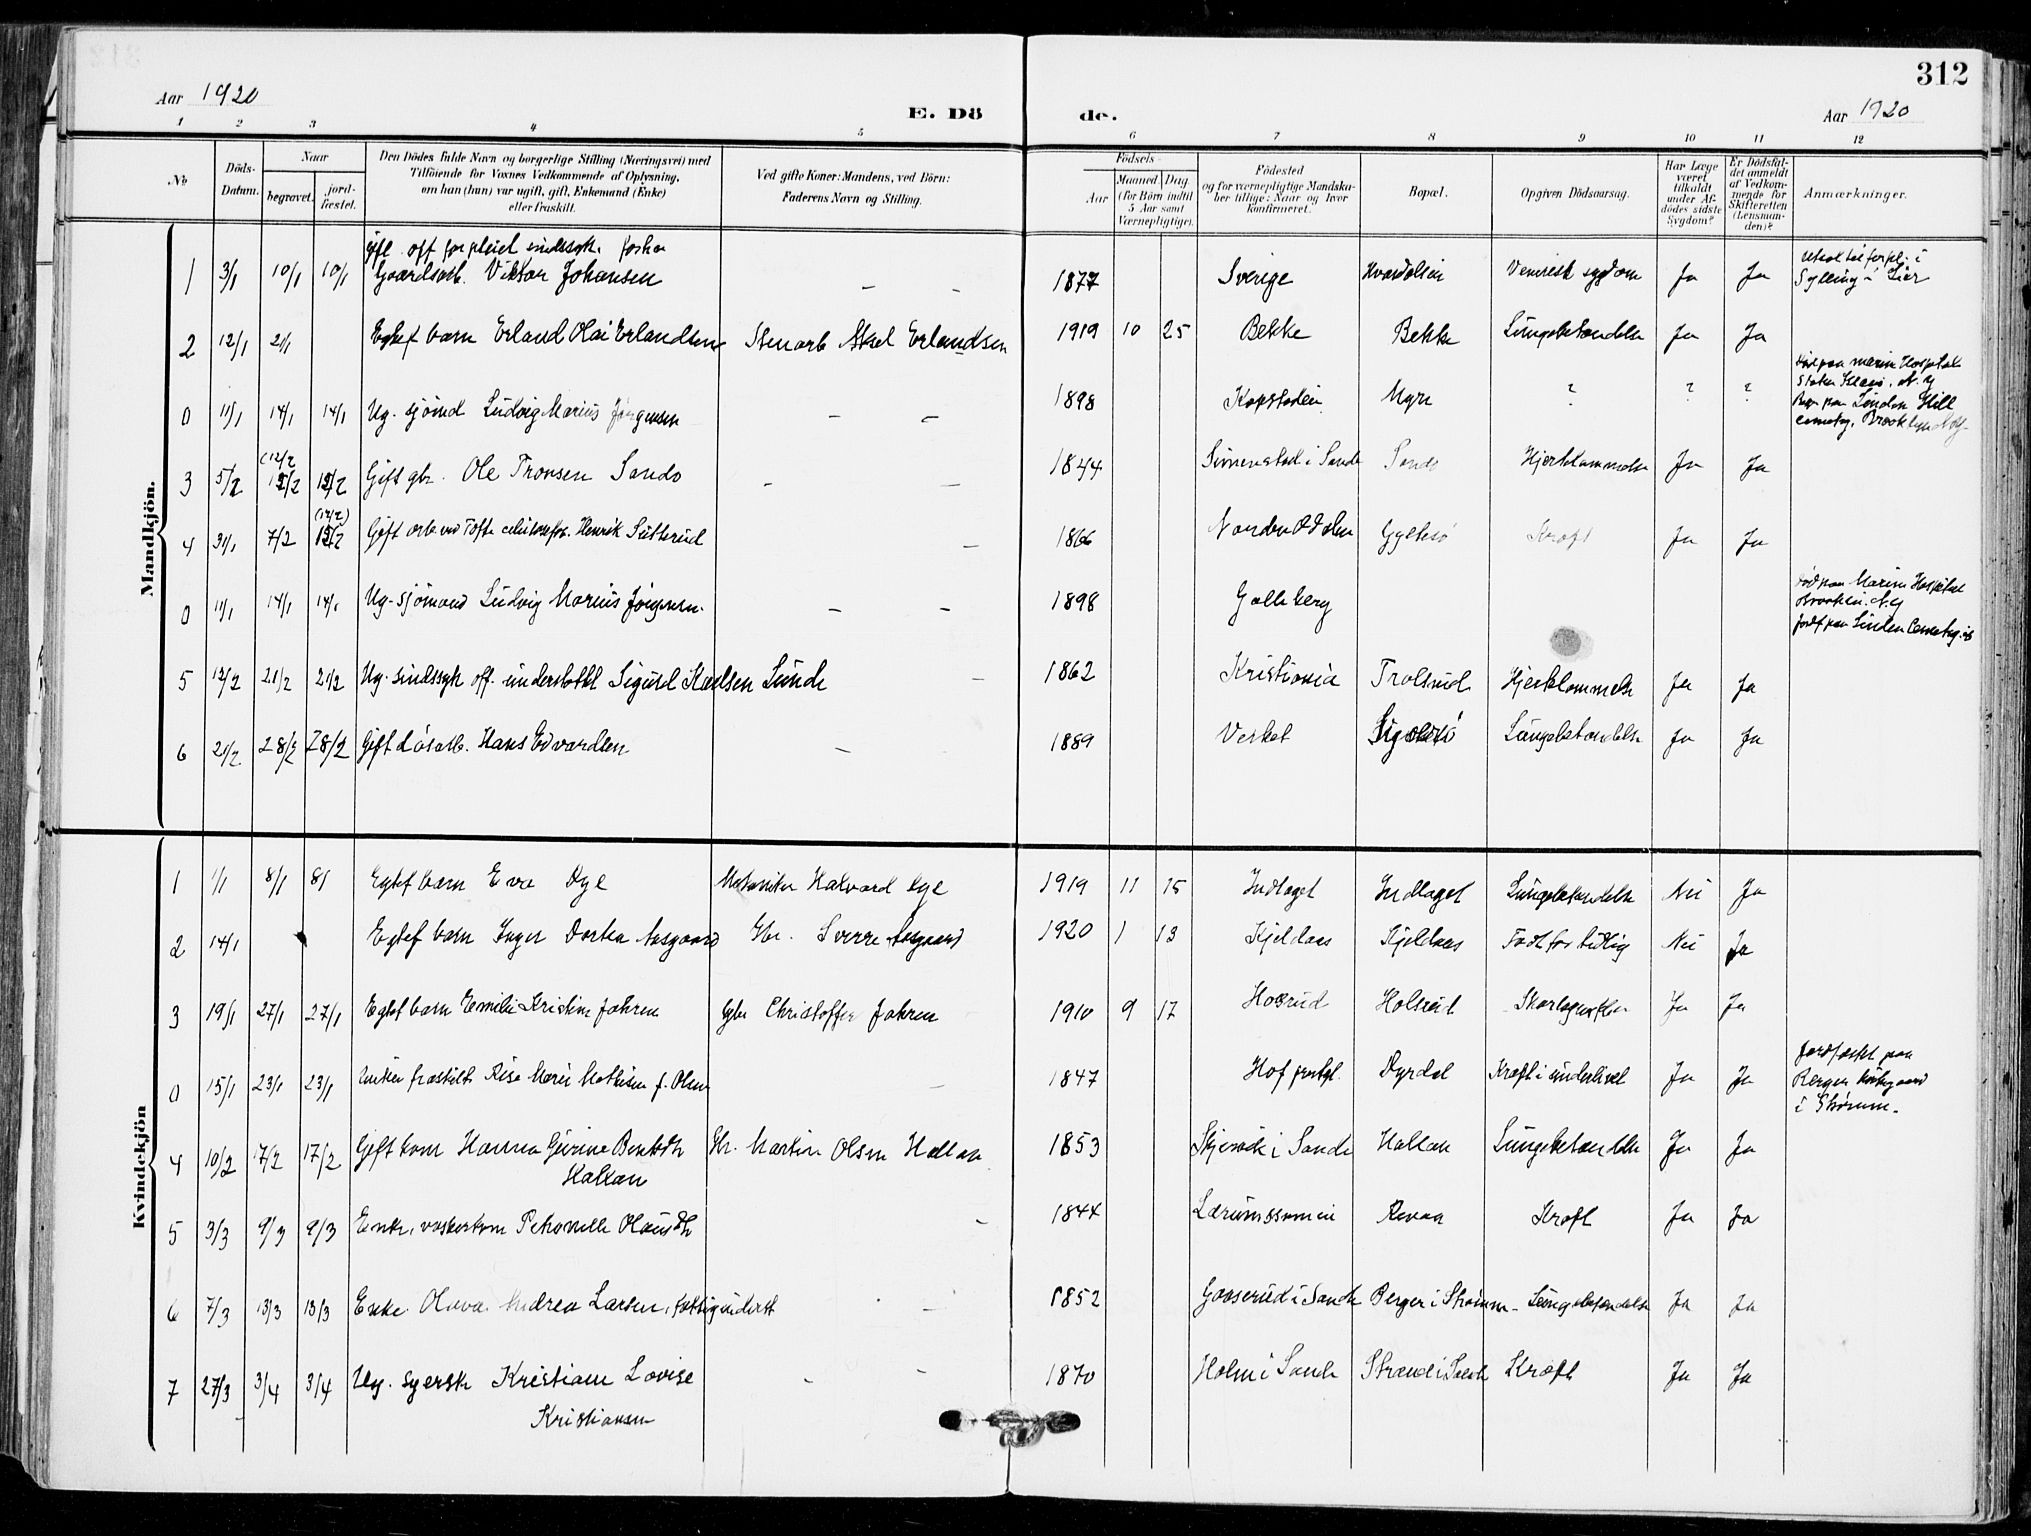 312
Aar 1920
E. Dö
de.
Aar 1920
1 2 3 4 5 6 7 8 9 10 11 12
No
Döds-Datum.
Naar
begravet.
jord-fæstet.
Den Dödes fulde Navn og borgerlige Stilling (Næringsvei) med
Tilföiende for Voxnes Vedkommende af Oplysning,
om han (hun) var ugift, gift, Enkemand (Enke)
eller fraskilt.
Ved gifte Koner: Mandens, ved Börn:
Faderens Navn og Stilling.
Födsels-
Aar
Maaned Dag
(for Börn indtil
5 Aar samt
Værnepligtige).
Födested
og for værnepligtige Mandska-
ber tillige: Naar og hvor
konfirmeret.
Bopæl.
Opgiven Dödsaarsag.
Har Læge
været
tilkaldt
under Af-
dödes sidste
Sygdom?
Er Dödsfal-
det anmeldt
af Vedkom-
mende for
Skifteretten
(Lensman-
den)?
Anmærkninger.
Mandkjön.
1 3/1 10/1 10/1 Gaardsarb. Viktor Johansen – – 1877 Sverige Venerisk sygdom Ja Ja
Sylling i Lier
2 12/1 21/1 Egtef barn Erland Olai Erlandsen Stenarb Aksel Erlandsen 1919 10 25 Bekke Bekke Lungebetændelse Ja Ja
0 11/1 14/1 14/1 Ug. sjömd Ludvig Marius Jörgensen – – 1898 Kopstadeie Myre ? ? ?
Brooklyn N.Y.
(12/2
3 5/2 12/2 Gift gbr. Ole Tronsen Sando – – 1844 Simenstad i Sande Sando Hjertelammelse Ja Ja
(12/2)
4 31/1 7/2 Gift arb ved Tofte cellulosefbr. Henrik Sutterud – 1866 Nordre Odalen Kræft Ja Ja
0 11/1 14/1 14/1 Ug. sjömand Ludvig Marius Jörgensen. – – 1898 Galleberg
död paa Marine Hospital
Brooklin. N.Y
jordf paa Linden Cemetery
5 12/2 21/2 21/2 Ug. sindssyk off. understöttet Sigurd Karlsen Lunde – 1862 Kristiania Trolsrud Hjertelammelse Ja Ja
6 21/2 28/2 28/2 Gift Lösarb. Hans Edvardsen – – 1889 Verket Lungebetændelse Ja Ja
Kvindekjön
1 1/1 8/1 8/1 Egtef barn Eva Dyl Halvard 1919 11 15 Indlaget Indlaget Lungebetændelse Nei Ja
2 14/1 Egtef barn Inger Dortea Aasgaard Gbr. Sverre Aasgaard 1920 1 13 Kjeldaas Kjeldaas Födt for tidlig Nei Ja
3 19/1 27/1 27/1 Egtef barn Emilie Kristine Johren Gbr Christoffer Johren 1910 9 17 Holsrud Ja Ja
0 15/1 23/1 23/1 Marie Mathisen f. Olsen – 1847 Hof prstgl. Dyrdal Kræft i underlivet Ja Ja
Jordfæstet paa
Berger kirkegaard
i Strömm.
4 10/2 17/2 17/2 Gift kone Hanna Gurine Bentsdtr Gbr. Martin Olsen Hallan 1853 i Sande Hallan Lungebetændelse Ja Ja
Hallan
5 3/3 9/3 9/3 Enke, vaskerkone Petronelle Olausdtr – 1844 Revaa Kræft Ja Ja
6 7/3 13/3 13/3 Enke Olava Andrea Larsen, fattigunderst – 1852 Gaaserud i Sande Berger i Strömm Lungebetændelse Ja Ja
7 27/3 3/4 3/4 Ug. syersk Kristiane Lovise – – 1870 Holm i Sande Strand i Sande Kræft Ja Ja
Kristiansen